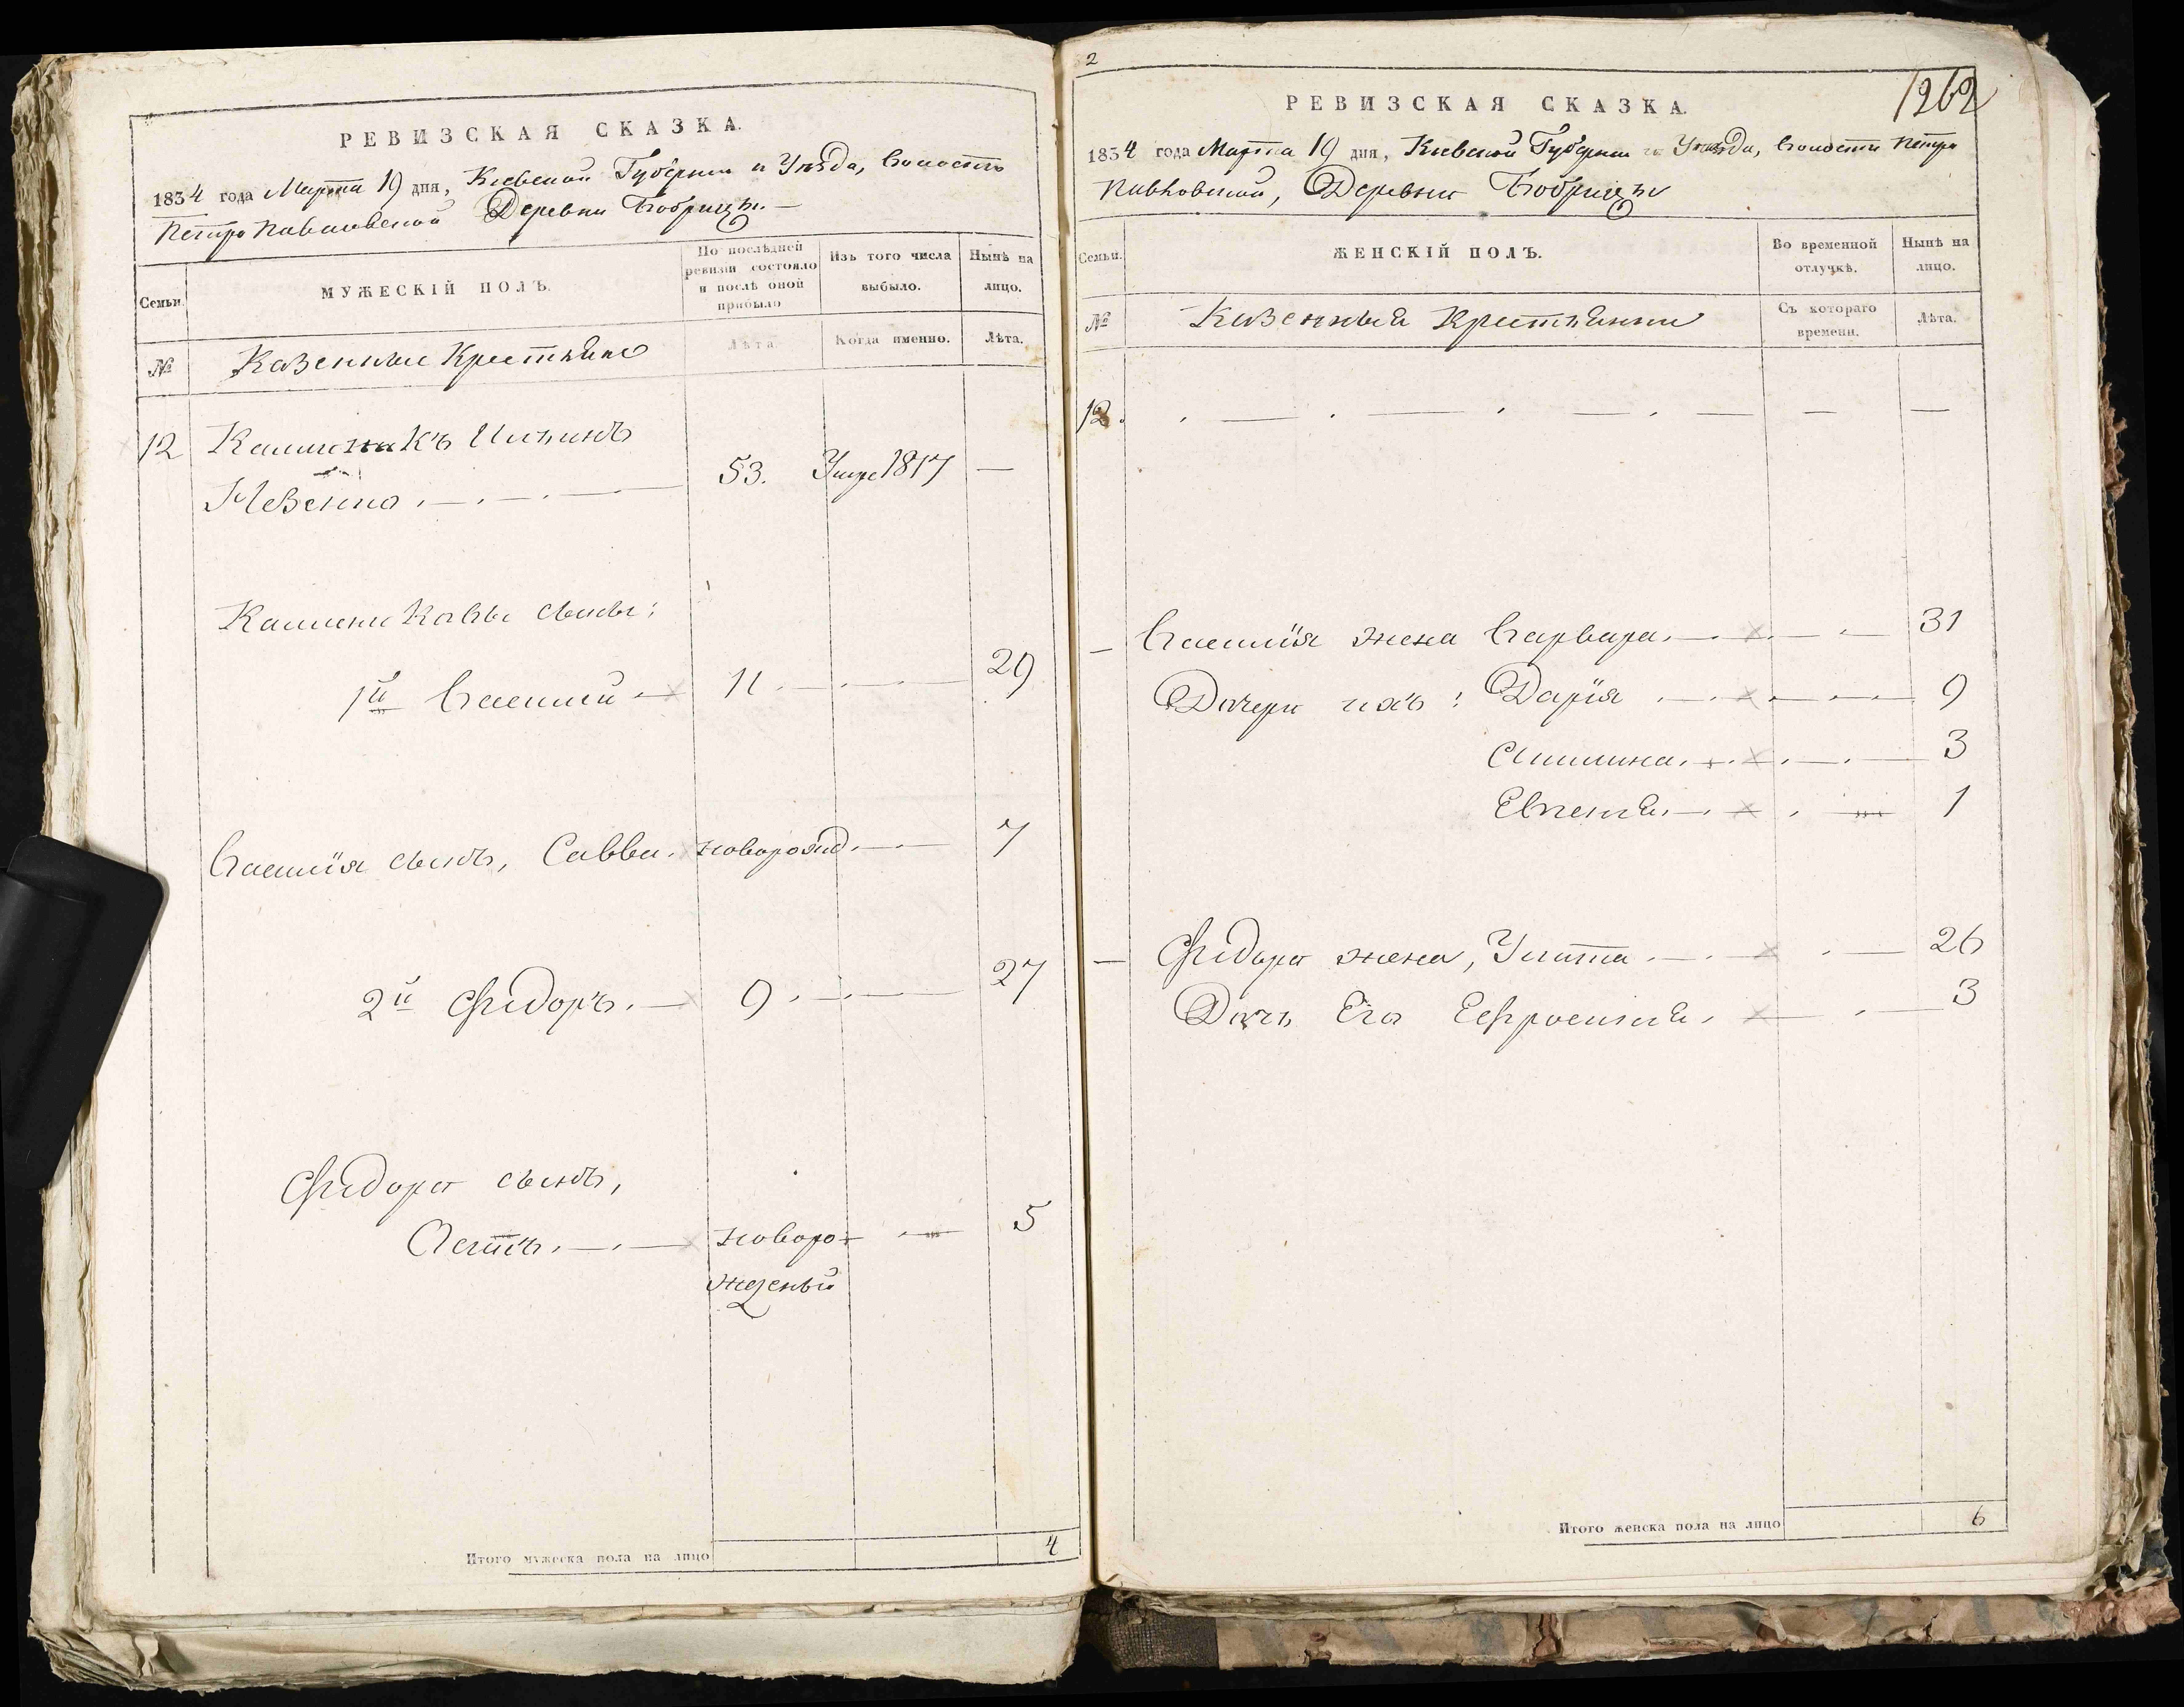 РЕВИЗСКАЯ СКАЗКА.
1834 года Марта 19 дня, Киевской Губернии и Уѣзда, Волости
Петро Павловской Деревни Бобрицы. —
Семьи.
МУЖЕСКІЙ ПОЛЪ.
По послѣдней ревизіи состояло и послѣ оной прибыло
Изъ того числа выбыло.
Нынѣ на лицо.
№
Казенные Крестьяне
Лѣта.
Когда именно.
Лѣта.
12
53. Умре 1817 —
сыны:
1й Василий — 11 — 29
Василія сынъ, Савва новорожд. — 7
2й Фидоръ. — 9 — 27
Фидора сынъ,
новоро- — 5
жденый
Итого мужеска пола на лицо 4
2
1262
РЕВИЗСКАЯ СКАЗКА.
1834 года Марта 19 дня, Киевской Губернии и Уѣзда, Волости Петро
Павловской, Деревни Бобрицы
Семьи.
ЖЕНСКІЙ ПОЛЪ.
Во временной отлучкѣ.
Нынѣ на лицо.
№
Казенныя Крестьянки
Съ котораго времени.
Лѣта.
12. — — — — — —
— Василія жена Варвара. — 31
Дочери ихъ: Дарія — 9
3
1
— Фидора жена, Улита — 26
Дочь Его Ефросинія — 3
Итого женска пола на лицо 6